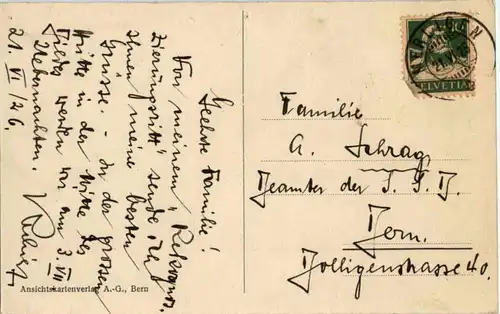 Geehrte Familie!
Von meinem "Rekognos-
zierungsritt" sende ich
Ihnen meine besten
Grüsse. - In der grossen
Hütte in der Mitte des
Bildes werden wir am 3. VII.
übernachten.
21. VI 26.
Familie
A. Schrag
Beamter der S. B. B.
Bern.
Bolligenstrasse 40.
HELVETIA
Ansichtskartenverlag A.-G., Bern